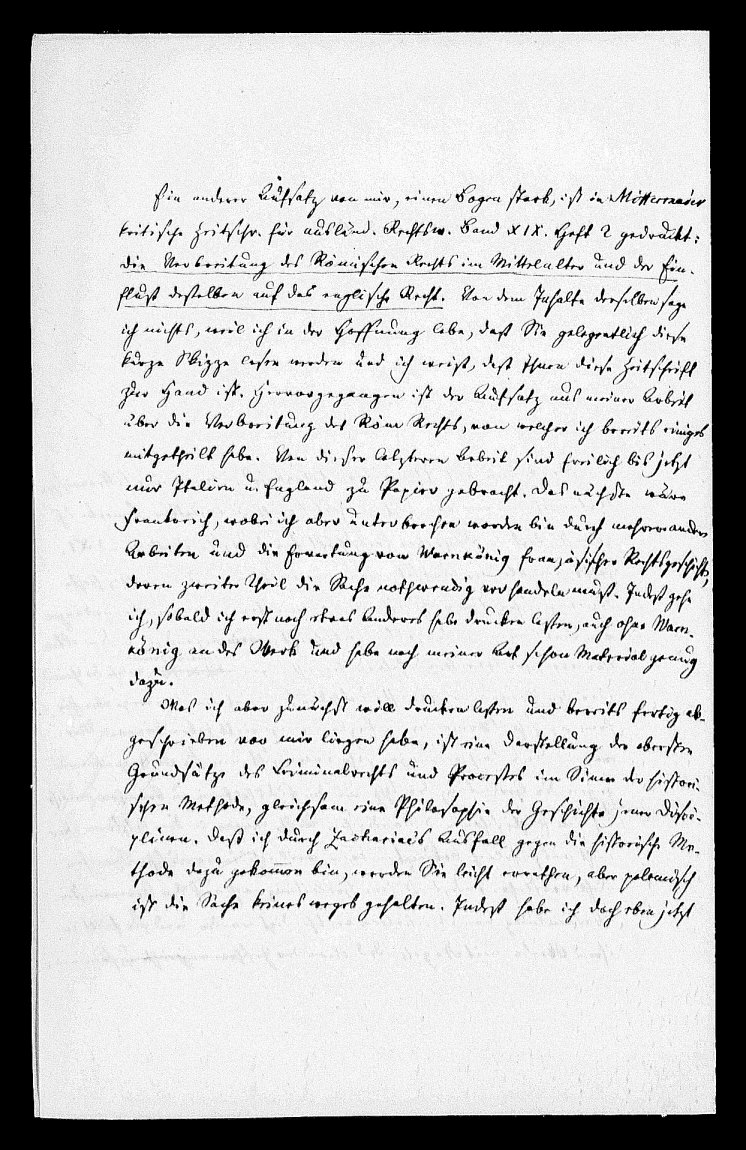 Ein anderer Aufsatz von mir, einen Bogen stark, ist in Mittermaier
kritische Zeitschr. für ausländ. Rechtsw. Band XIX. Heft 2 gedruckt:
die Verbreitung des Römischen Rechts im Mittelalter und der Ein-
fluß desselben auf das englische Recht. Von dem Inhalte desselben sage
ich nichts, weil ich in der Hoffnung lebe, daß Sie gelegentlich diese
kurze Skizze lesen werden und ich weiß, daß Ihnen diese Zeitschrift
zur Hand ist. Hervorgegangen ist der Aufsatz aus meiner Arbeit
über die Verbreitung des Röm Rechts, von welcher ich bereits einiges
mitgetheilt habe. Von dieser letzteren Arbeit sind freilich bis jetzt
nur Italien u. England zu Papier gebracht. Das nächste wäre
Frankreich, wobei ich aber unterbrochen worden bin durch mehrere andere
Arbeiten und die Erwartung von Warnkönig französischer Rechtsgeschichte,
deren zweiter Theil die Sache nothwendig verhandeln muß. Indeß gehe
ich, sobald ich erst noch etwas Anderes habe drucken lassen, auch ohne Warn-
könig an das Werk und habe nach meiner Art schon Material genug
dazu.
Was ich aber zunächst will drucken lassen und bereits fertig ab-
geschrieben vor mir liegen habe, ist eine Darstellung der obersten
Grundsätze des Criminalrechts und Processes im Sinne der histori-
schen Methode, gleichsam eine Philosophie der Geschichte jener Disci-
plinen. Daß ich durch Zachariae's Ausfall gegen die historische Me-
thode dazu gekommen bin, werden Sie leicht errathen, aber polemisch
ist die Sache keineswegs gehalten. Indeß habe ich doch eben jetzt